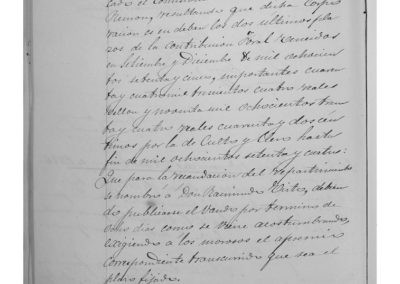 Remon, resultando que dicha Corpo
racion es en deber los dos ultimos pla
zos de la Contribucion Foral vencidos
en Setiembre y Diciembre de mil ochocien
tos setenta y cinco, importantes cuaren
ta y cuatro mil trescientos cuatro reales
vellon y noventa mil ochocientos trein
ta y cuatro reales cuarenta y dos cen
timos por la de Culto y Clero hasta
fin de mil ochocientos setenta y cuatro:
Que para la recaudacion del repartimiento
se nombró a Don Raimundo deben
do publicarse el Vando por termino de
dias como se viene acostumbrando,
exigiendo a los morosos el apremio
correspondiente transcurrido que sea el
plazo fijado.